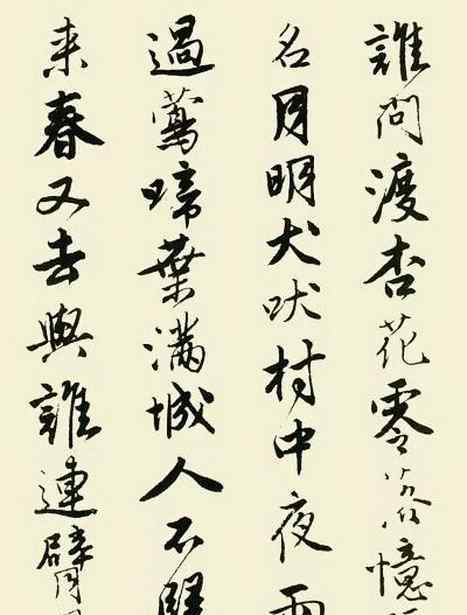 誰問渡杏花零落憶
名月明犬吠村中夜
過鶯啼葉滿城人不
来春又去與誰連臂